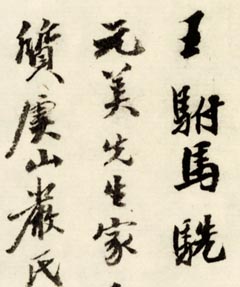 王駙馬詵
元美先生家
質虞山嚴氏